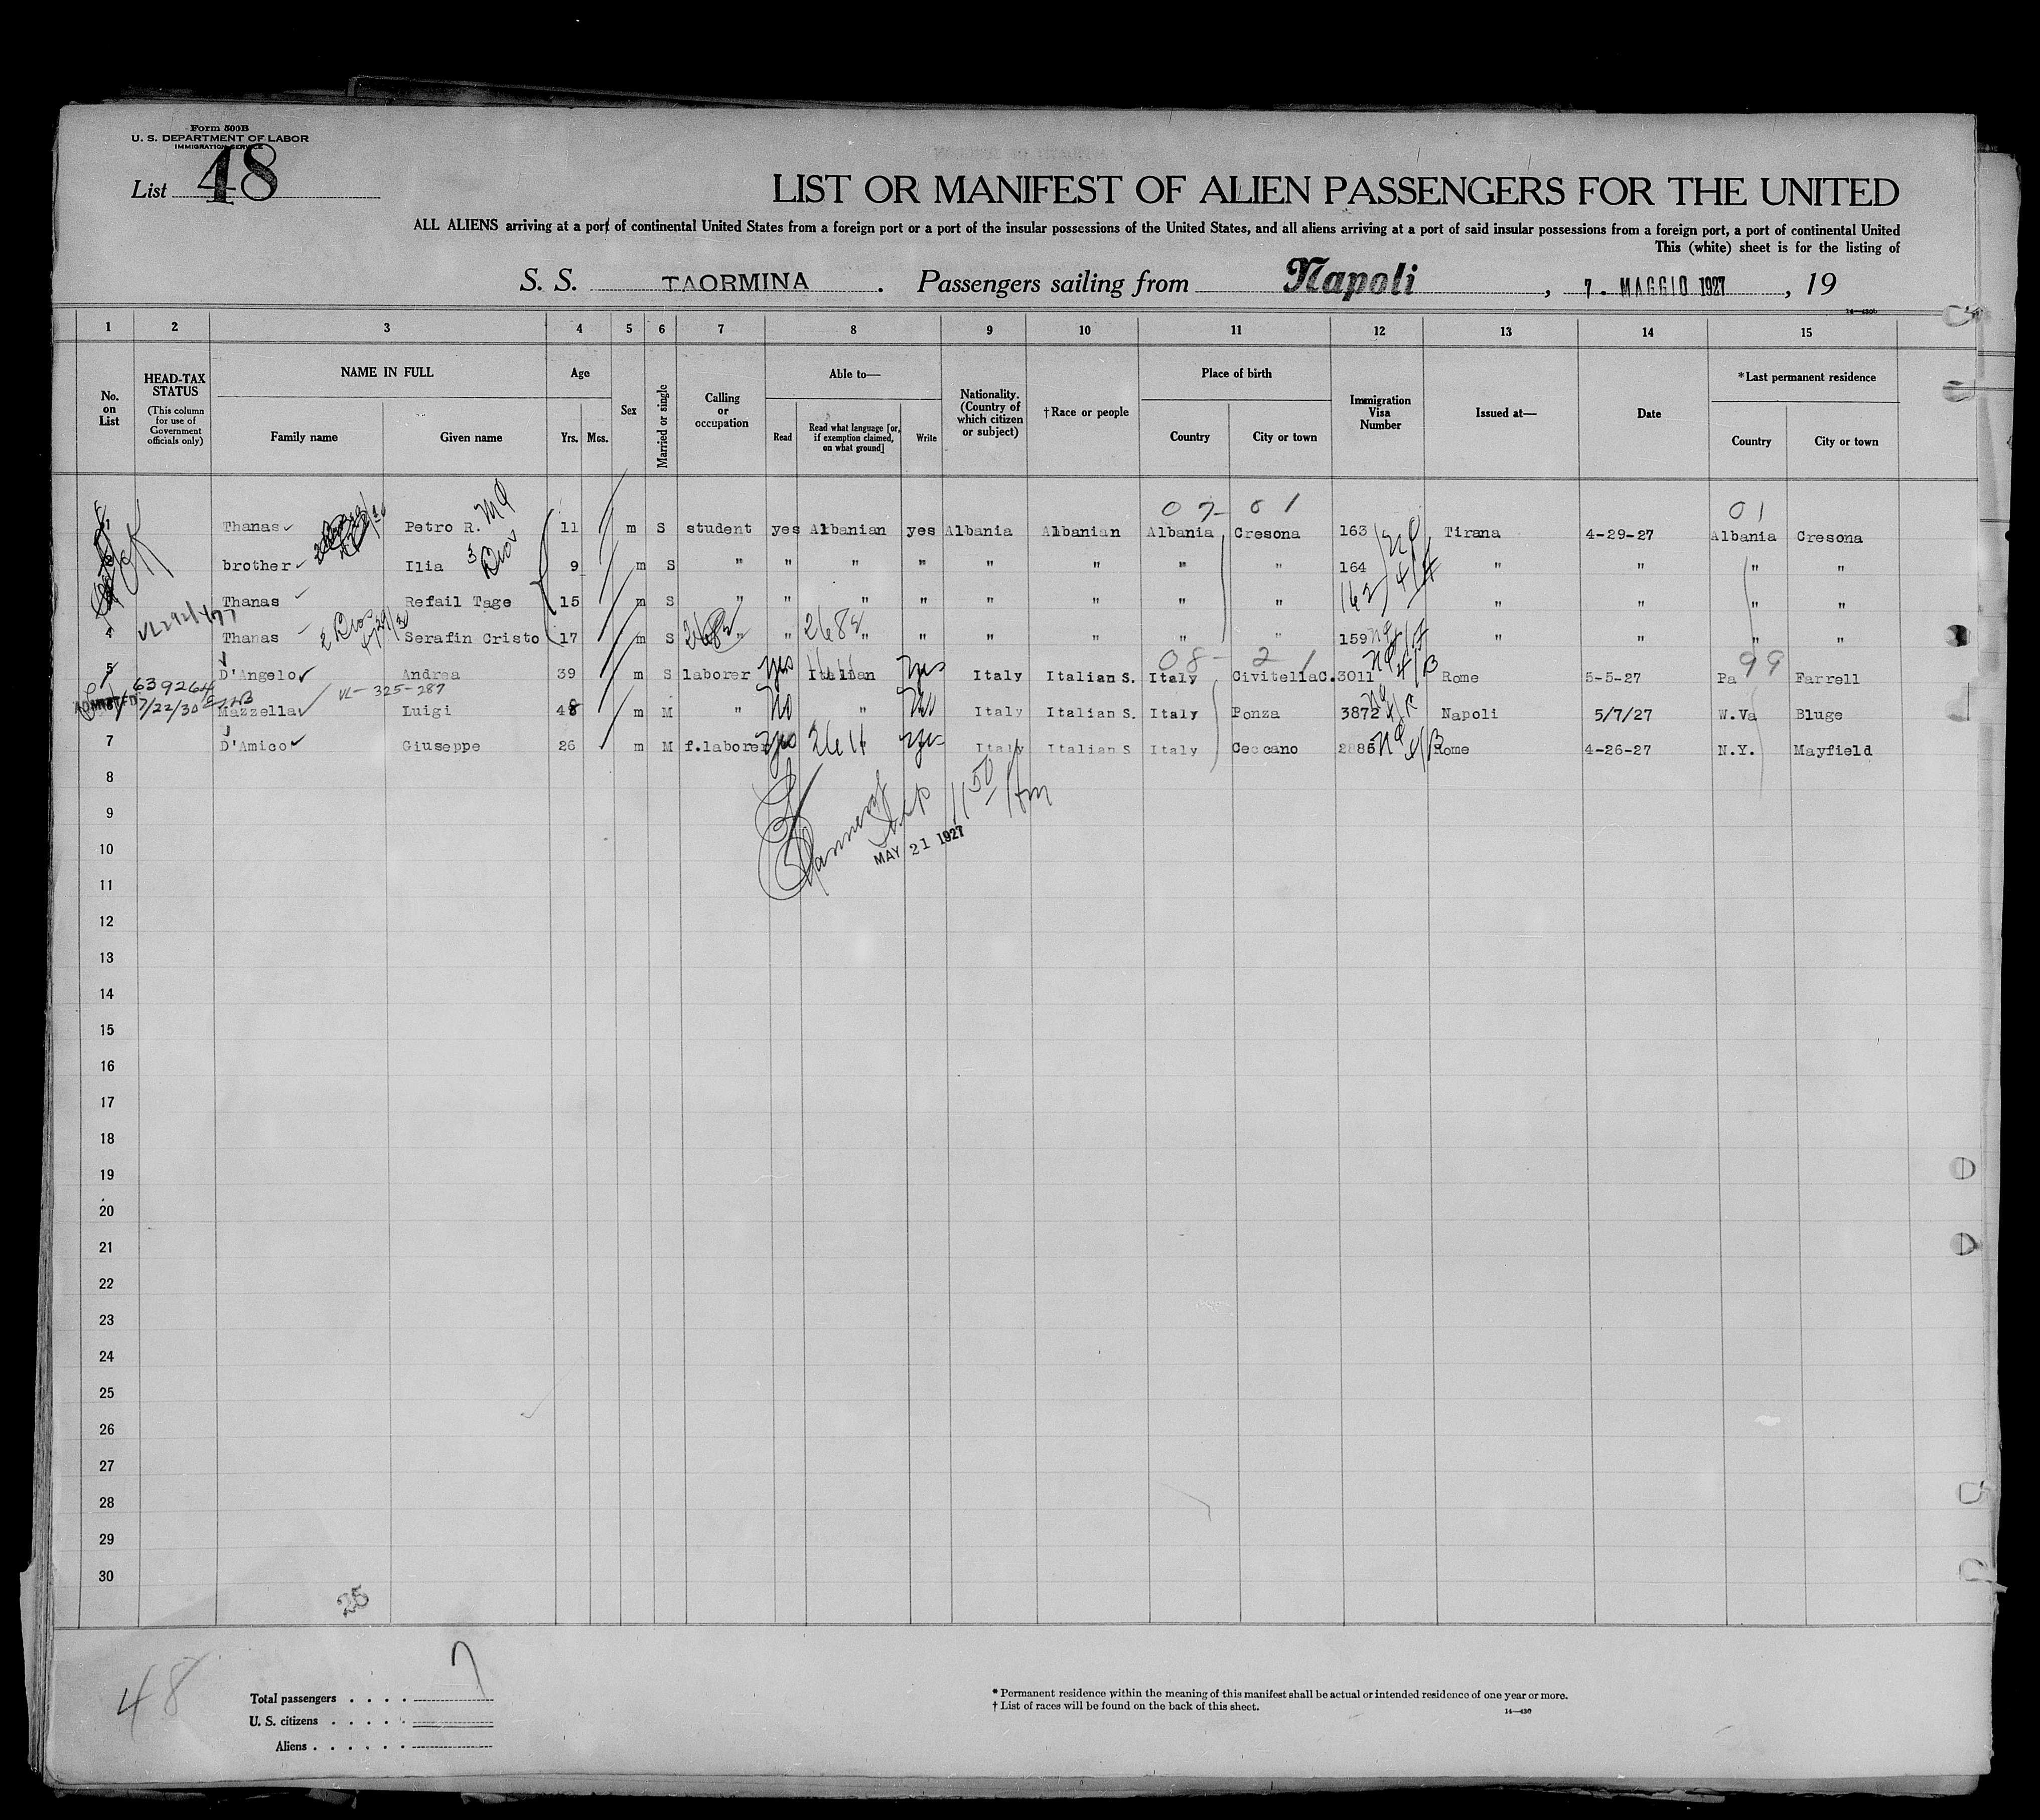 Form 500B
U. S. DEPARTMENT OF LABOR
IMMIGRATION SERVICE
List 48
LIST OR MANIFEST OF ALIEN PASSENGERS FOR THE UNITED
ALL ALIENS arriving at a port of continental United States from a foreign port or a port of the insular possessions of the United States, and all aliens arriving at a port of said insular possessions from a foreign port, a port of continental United
This (white) sheet is for the listing of
S. S. TAORMINA . Passengers sailing from Napoli , 7 . MAGGIO 1927 , 19
1 2 3 4 5 6 7 8 9 10 11 12 13 14 15
No. on List HEAD-TAX STATUS (This column for use of Government officials only) NAME IN FULL Family name Given name Age Yrs. Mos. Sex Married or single Calling or occupation Able to— Read Read what language [or, if exemption claimed, on what ground] Write Nationality. (Country of which citizen or subject) †Race or people Place of birth Country City or town Immigration Visa Number Issued at— Date *Last permanent residence Country City or town
07 01 01
Thanas Petro R. 11 m S student yes Albanian yes Albania Albanian Albania Cresona 163 Tirana 4-29-27 Albania Cresona
brother Ilia 9 m S " " " " " " " " 164 " " " "
Thanas Refail Tage 15 m S " " " " " " " 162 " " " "
VL292/477
4 Thanas Serafin Cristo 17 m S " " 268 " " " " " " 159 " " " "
08- 2 1 99
5 D'Angelo Andrea 39 m S laborer yes Italian yes Italy Italian S. Italy CivitellaC. 3011 Rome 5-5-27 Pa Farrell
639264 VL-325-287
ADMITTED 7/22/30 Mazzella Luigi 48 m M " No " No Italy Italian S. Italy Ponza 3872 Napoli 5/7/27 W.Va Bluge
7 D'Amico Giuseppe 26 m M f.laborer yes yes Italy Italian S Italy Ceccano 2886 Rome 4-26-27 N.Y. Mayfield
8
9
11 50 Am
10
MAY 21 1927
11
12
13
14
15
16
17
18
19
20
21
22
23
24
25
26
27
28
29
30
25
48
Total passengers . . . . 7
U. S. citizens . . . . .
Aliens . . . . . .
* Permanent residence within the meaning of this manifest shall be actual or intended residence of one year or more.
† List of races will be found on the back of this sheet.
14—430